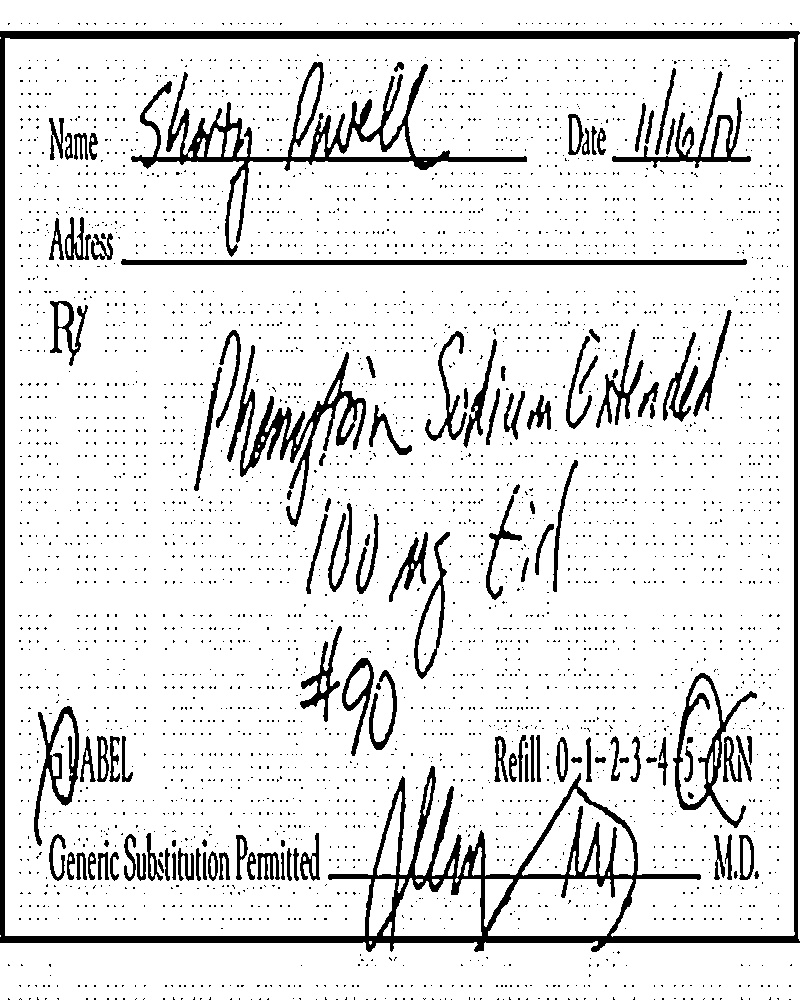 Name Shorty Powell Date 11/16/
Address
Rx
Phenytoin Sodium Extended
100 mg tid
#90
LABEL Refill 0-1-2-3-4-5-PRN
Generic Substitution Permitted M.D.